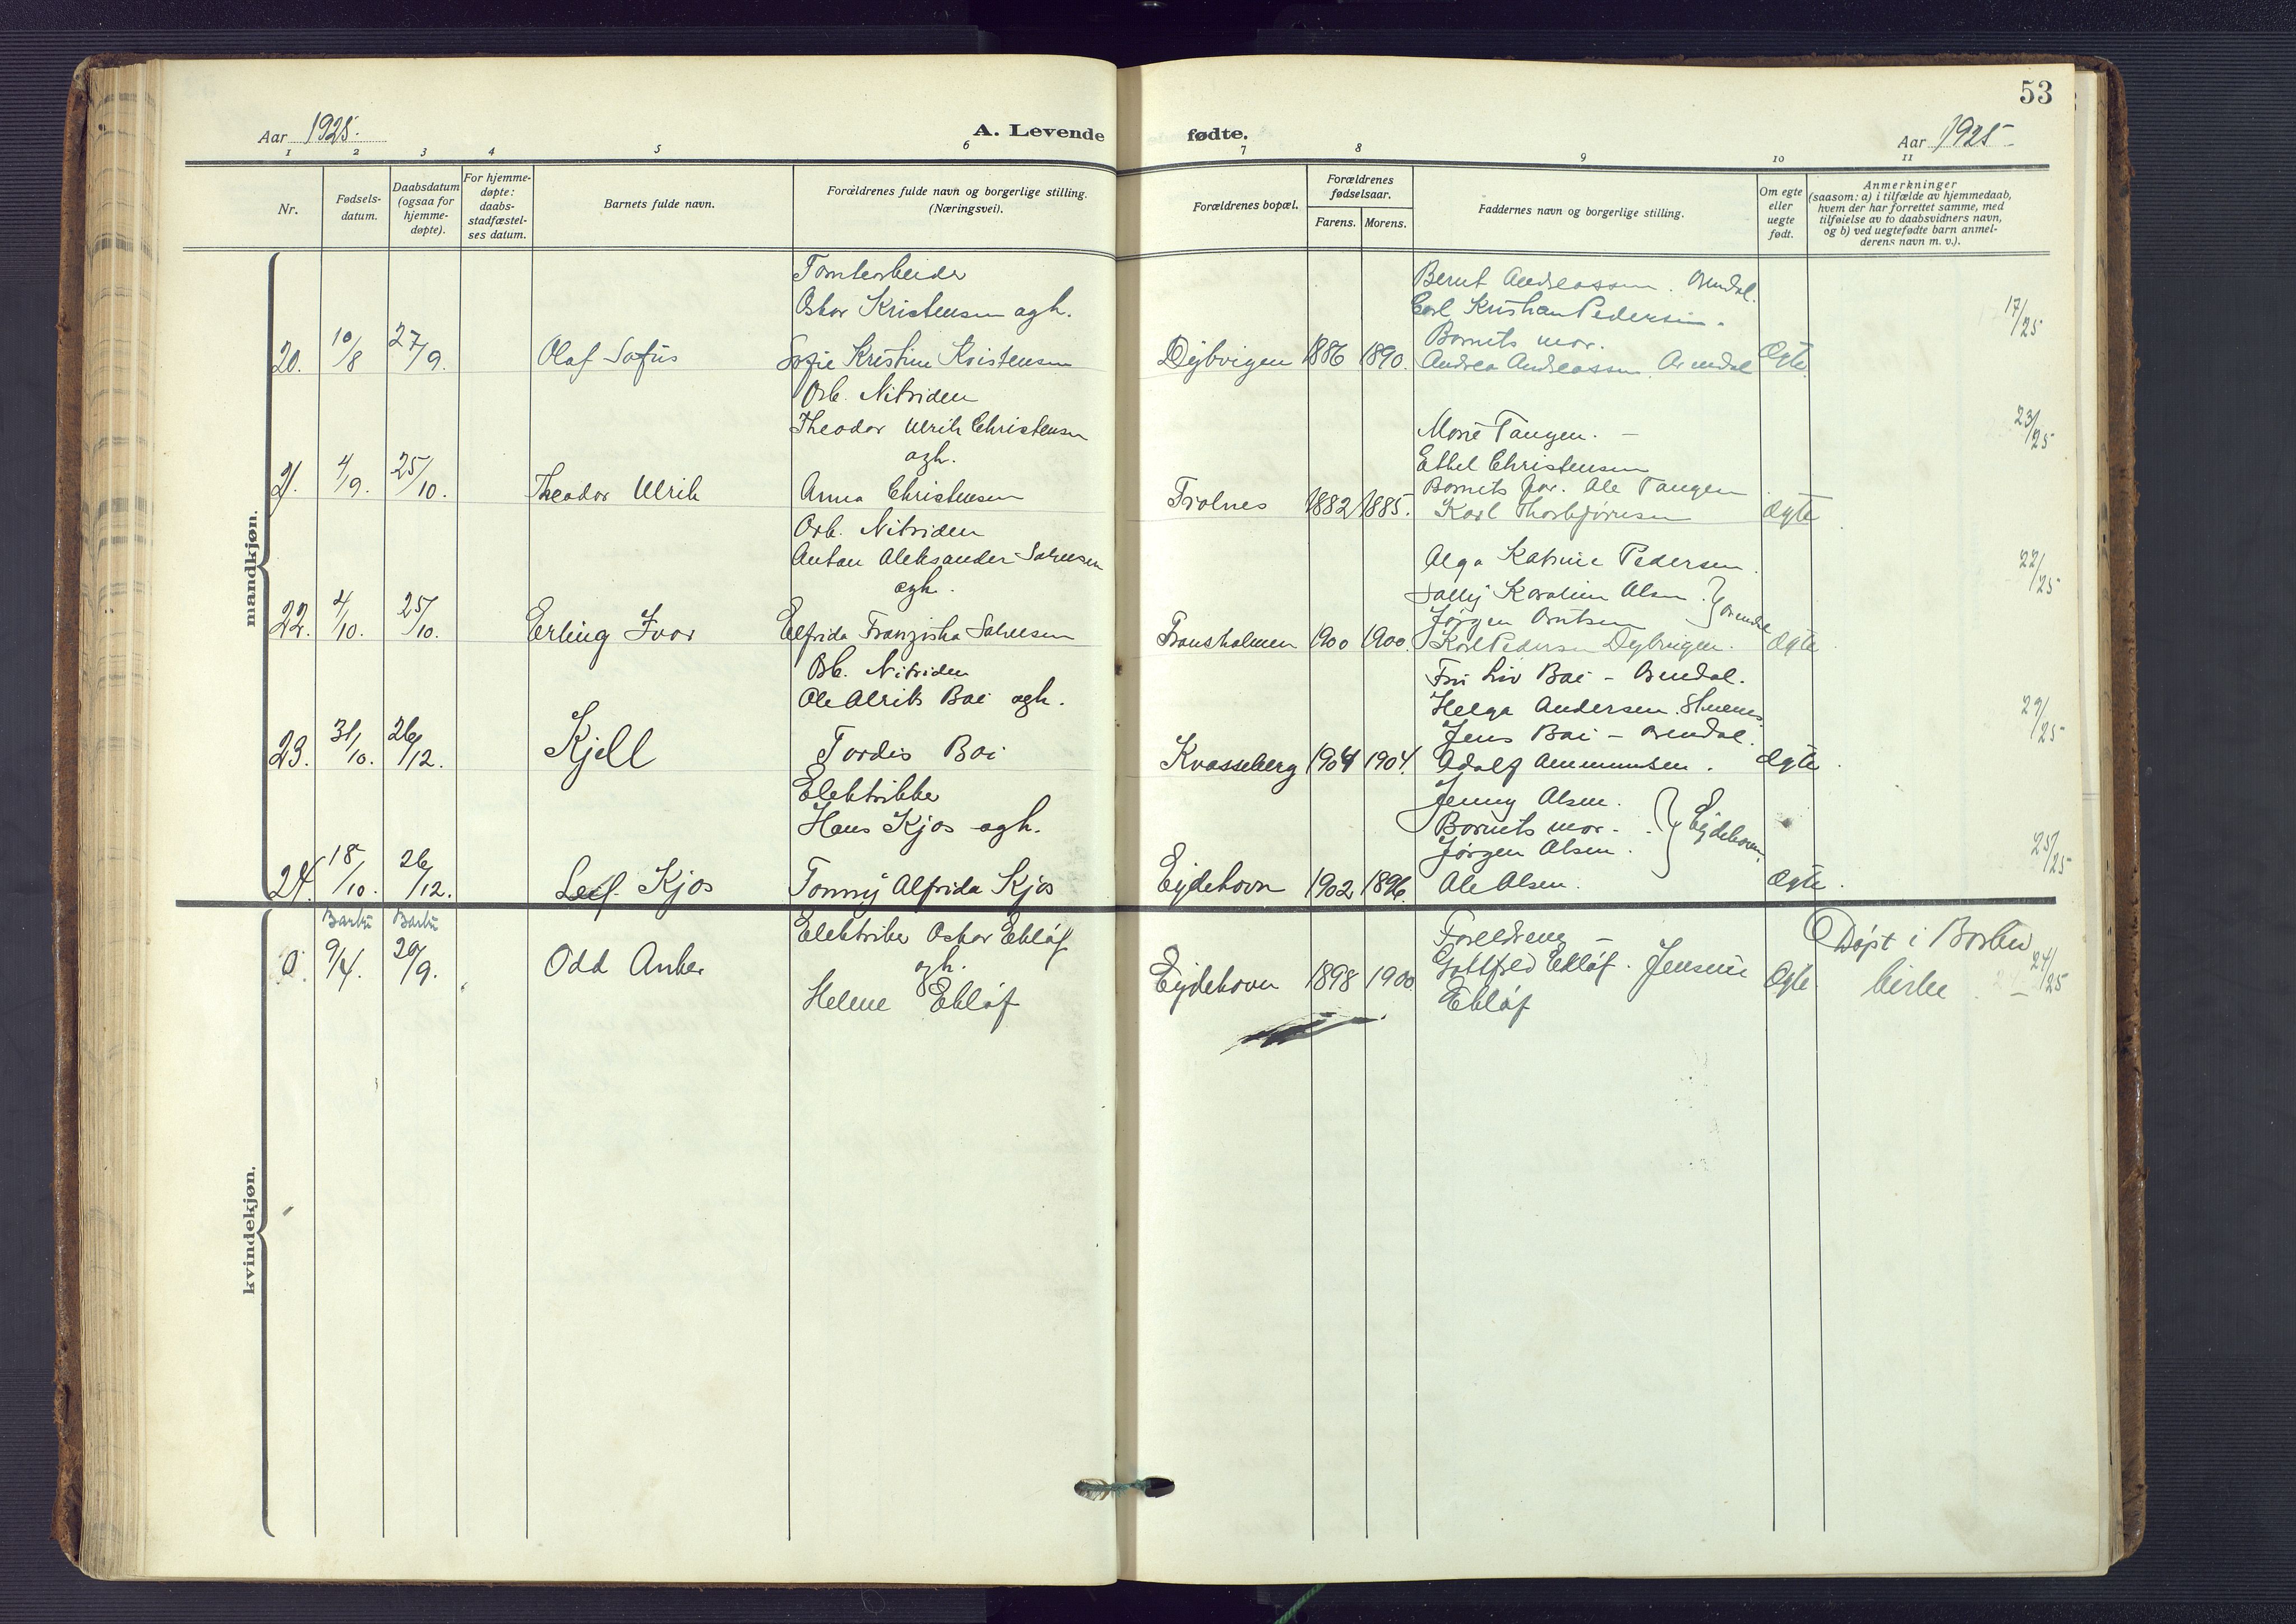 53
Aar 1925.
A. Levende fødte.
Aar 1925
1 2 3 4 5 6 7 8 9 10 11
Nr.
Fødsels-
datum.
Daabsdatum
(ogsaa for
hjemme-
døpte).
For hjemme-
døpte:
daabs-
stadfæstel-
ses datum.
Barnets fulde navn.
Forældrenes fulde navn og borgerlige stilling.
(Næringsvei).
Forældrenes bopæl.
Forældrenes
fødselsaar.
Farens. Morens.
Faddernes navn og borgerlige stilling.
Om egte
eller
uegte
født.
Anmerkninger
(saasom: a) i tilfælde av hjemmedaab,
hvem der har forrettet samme, med
tilføielse av to daabsvidners navn,
og b) ved uegtefødte barn anmel-
derens navn m. v.).
mandkjøn.
20. 10/8 27/9. Olaf Sofus
Tomtearbeider
Oskar Kristensen ogh.
Sofie Kristine Kristensen
Dybvigen 1886 1890.
Bernt Andreassen. Arendal.
Carl Kristian Pedersen.
Barnets mor.
Andrea Andreassen. Arendal
Egte.
17/25
21. 4/9. 25/10. Theodor Ulrik
Arb. Nitriden
Theodor Ulrik Christensen
ogh.
Anna Christensen
Trolnes 1882 1885.
Marie Tangen. –
Ethel Christensen
Barnets far. Ole Tangen
Karl Thorbjørnsen
Egte
23/25
22. 4/10. 25/10. Erling Ivar
Arb. Nitriden
Anton Aleksander Salvesen
ogh.
Elfrida Franziska Salvesen
Fransholmen 1900 1900.
Olga Katrine Pedersen.
Sally Karoline Olsen.
Jørgen Arntsen
Karl Pedersen Dybvigen.
Egte.
22/25
23. 31/10. 26/12. Kjell
Arb. Nitriden
Ole Alrik Boi ogh.
Tordis Boi
Kvasseberg 1904 1904.
Fru Liv Boi – Arendal.
Helga Andersen. Stuenes.
Jens Boi – Arendal.
Adolf Ammundsen.
Egte.
29/25
24. 18/10. 26/12. Leif Kjos
Elektrikker
Hans Kjos ogh.
Tonny Alfrida Kjos
Eydehavn 1902 1896.
Jenny Olsen.
Barnets mor.
Jørgen Olsen.
Ole Olsen.
Eydehavn.
Egte.
25/25
kvindekjøn.
Barbu Barbu
0. 9/4. 20/9. Odd Anker
Elektriker Oskar Ekløf
ogh.
Helene Ekløf
Eydehavn 1898 1900
Foreldrene –
Gottfred Ekløf. Jensine
Ekløf
Egte.
Døpt i Barbu
kirke.
24/25